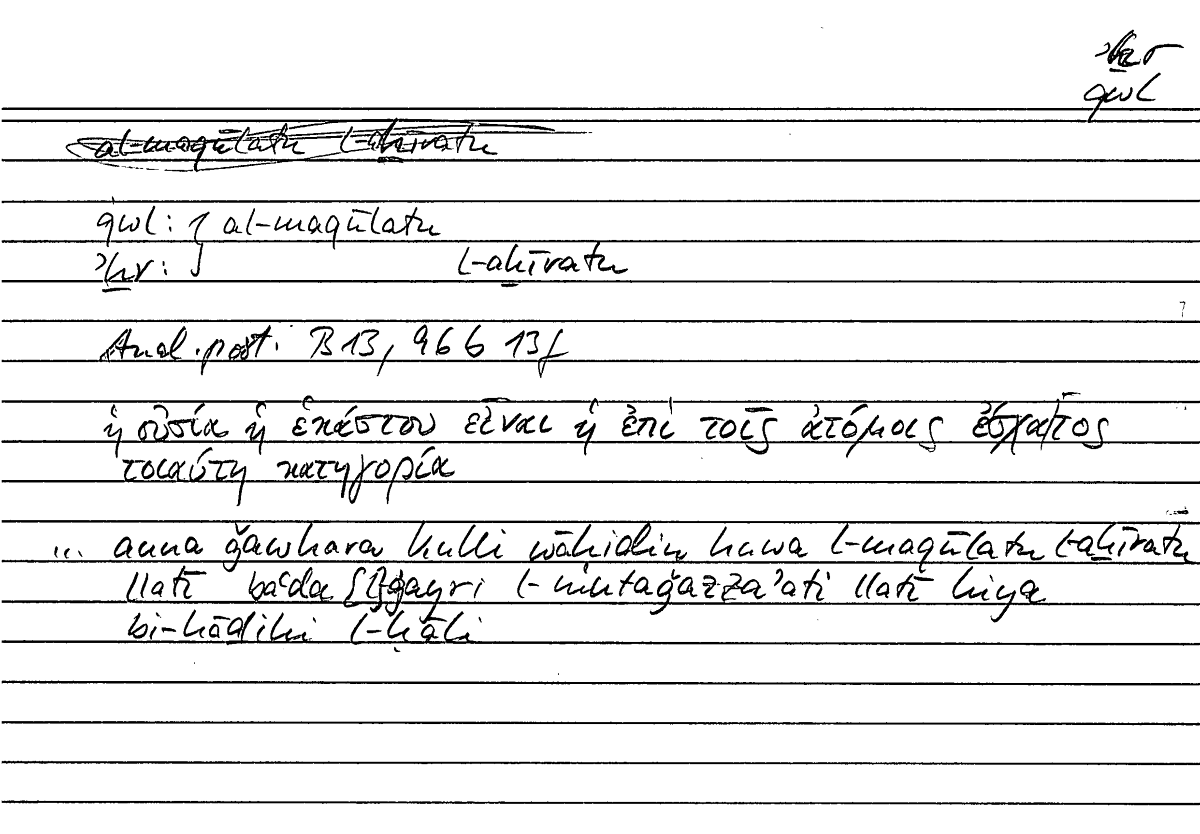 ʾḫr
qwl
al-maqūlatu l-aḫīratu
qwl: } al-maqūlatu
ʾḫr: } l-aḫīratu
Anal. post. B 13, 96 b 13f
ἡ οὐσία ἡ ἑκάστου εἶναι ἡ ἐπὶ τοῖς ἀτόμοις ἔσχατος
τοιαύτη κατηγορία
... anna ǧawhara kulli wāḥidin huwa l-maqūlatu l-aḫīratu
llatī baʿda [l]ġayri l-mutaǧazzaʾati llatī hiya
bi-hāḏihi l-ḥāli